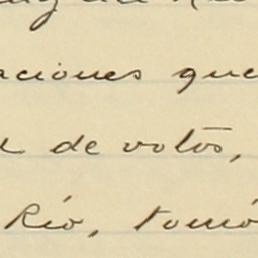 aciones que
de votos,
Río, tomó